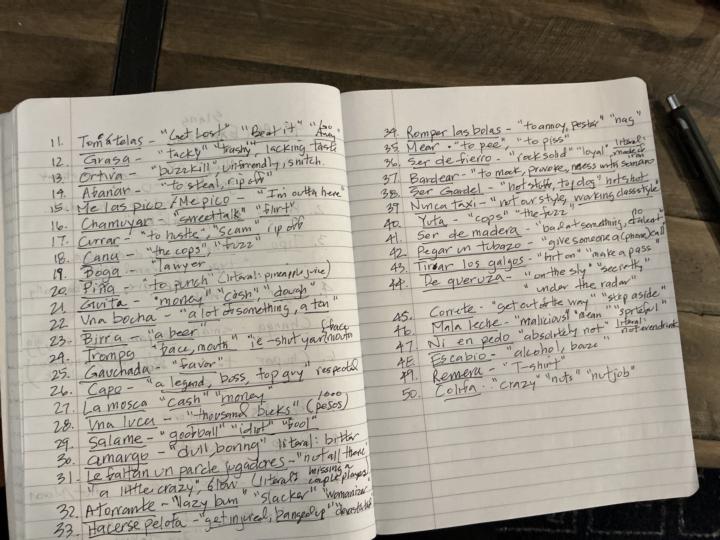 11. Tomátelas - "Get Lost" "Beat it" "Go Away"
12. Grasa - "tacky" "trashy", lacking taste
13. Ortiva - "buzzkill, unfriendly, snitch.
14. Afanar - "to steal, rip off"
15. Me las pico / Me pico - "I'm outta here"
16. Chamuyar - "smeettalk" "flirt"
17. Currar - "to hustle" "scam" rip off
18. Cana - "the cops", "fuzz"
19. Boga - "lawyer,
20. Piña - to punch (literal: pineapple juice)
21. Guita - "money" "cash", "dough"
22. Una bocha - "a lot of something, a ten"
23. Birra - "a beer"
24. Trompa - "face, mouth" "je - shut your mouth
25. Gauchada - "favor" face
26. Capo - "a legend, boss, top guy respected
27. La mosca "cash" "money"
28. Una luca - "thousand bucks" (1000 pesos)
29. Salame - "goofball" "idiot" "fool"
30. amargo - "dull, boring" literal: bitter
31. Le faltan un parcle jugadores - "not all there"
"a little crazy", slow (literal: missing a couple players)
32. Atorrante - "lazy bum" "slacker" "womanizer"
33. Hacerse pelota - "get injured, banged up"
34. Romper las bolas - "to annoy, pester" "nag"
35. Mear - "to pee", "to piss"
36. Ser de fierro - "rock solid" "loyal" literal: made of iron
37. Bardear - "to mock, provoke, mess with someone
38. Ser Gardel - "hot stuff, top dog" hotshot
39 Nunca taxi - "not our style, working class style"
40. Yuta - "cops" "the fuzz"
41. Ser de madera - "bad at something, no talent"
42. Pegar un tubazo - "give someone a (phone) call
43. Tirar los galgos - "hit on" "make a pass"
44. De queruza - "on the sly" "secretly"
"under the radar"
45. Correte - "get out of the way" "step aside"
46. Mala leche - "malicious" "mean" "spiteful"
47. Ni en pedo "absolutely not" literal: not even drunk
48. Escabio - "alcohol, booze"
49. Remera - "T-shirt"
50. Colifa - "crazy" "nuts" "nutjob"